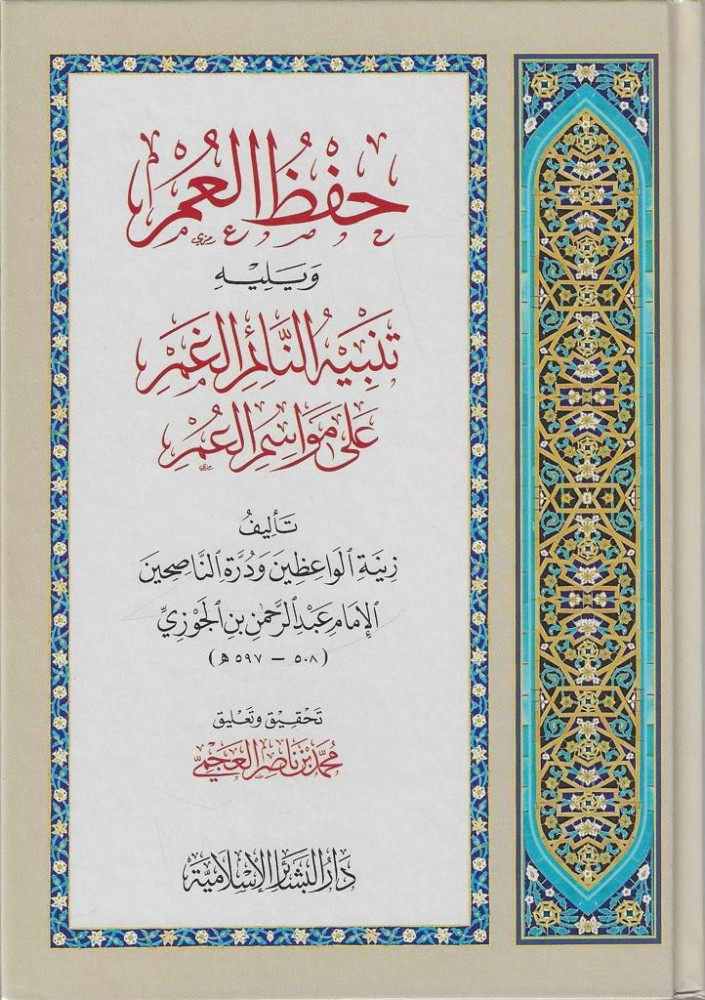 حِفْظُ العُمُرِ
وَيَلِيْهِ
تَنْبِيْهُ النَّائِمِ الغَمْرِ
عَلَى مَوَاسِمِ العُمُرِ
تَأْلِيفُ
زِيْنَةِ الوَاعِظِينَ وَدُرَّةِ النَّاصِحِينَ
الإِمَامِ عَبْدِ الرَّحْمٰنِ بْنِ الجَوْزِيِّ
(٥٠٨ - ٥٩٧ هـ)
تَحْقِيْق وَتَعْلِيق
مُحَمَّد بْن نَاصِر العَجْمِيّ
دَارُ البَشَائِرِ الإِسْلَامِيَّة